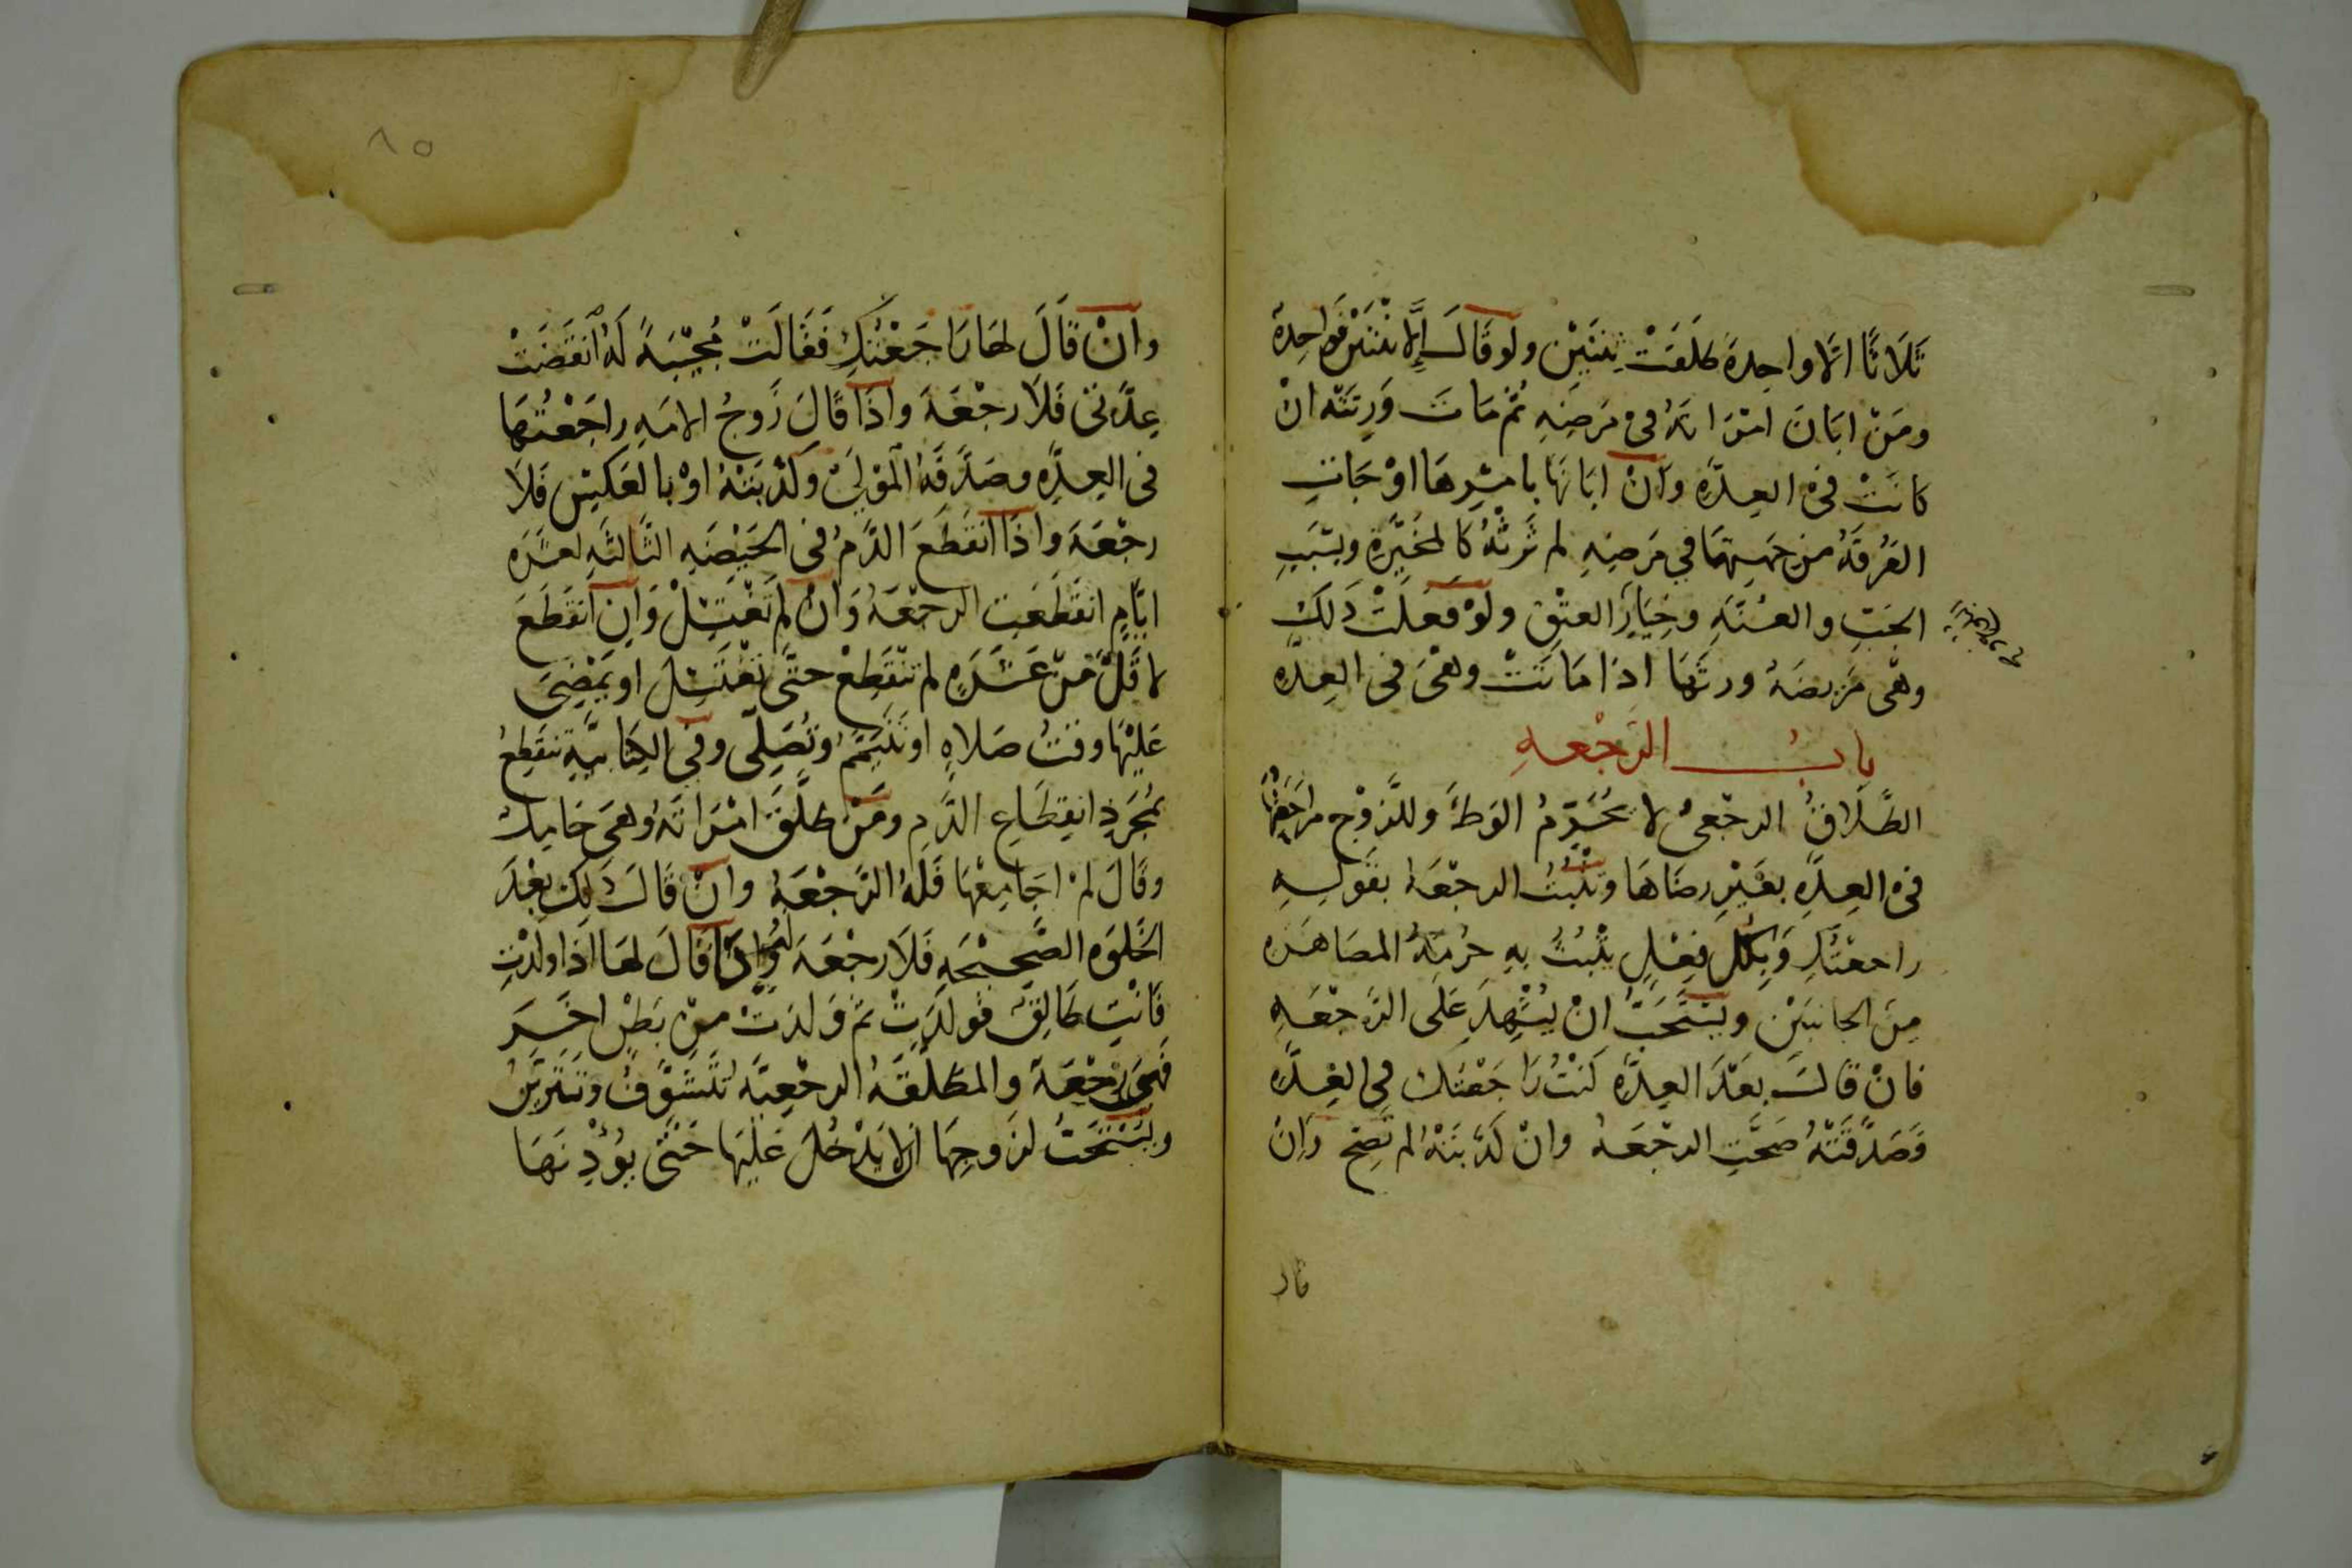 ثَلَاثًا الّا واحِدةً طَلَقَتْ ثِنتَيْنِ ولو قَالَ إلّا ثِنْتَيْنِ فَواحِدةً
ومَنْ ابَانَ امْرَاتَهُ فِى مَرَضِهِ ثُمّ مَاتَ وَرِثَتْه انْ
كانَتْ فِى العِدَّةِ وانْ ابَانَهَا بامْرِهَا اوْ جَاتِ
الفُرقَةُ من جِهَتِهَا فِي مَرَضِهِ لم تَرِثْهُ كالمُخَيَّرةِ وبسَبَبِ
الجَبِّ والعُنَّةِ وخِيَارِ العِتْقِ ولوْ فَعَلَتْ ذَلكَ
وهْى مَريضَهُ ورثَهَا اذا مَاتَتْ وهْىَ فى العِدَّه
بابُ الرَّجْعهِ
الطَّلَاقُ الرجْعىُّ لا يُحَرِّمُ الوَطْءَ وللزَوْجِ مراجَعتُهَا
فى العِدَّةِ بغَيْرِ رضَاهَا وتَثْبُتُ الرجْعَه بقَولِهِ
راجعْتُكِ وَبكُلّ فِعْلٍ يثْبُتُ بِهِ حُرمَةُ المصَاهَره
مِنَ الجانبَيْنِ ويُسْتَحَبُّ انْ يُشْهِدَ عَلَى الرَّجْعَهِ
فانْ قالَ بعْدَ العِدَّةِ كنْتُ رَاجَعْتكِ فِى العِدَّه
فَصَدَّقَتْهُ صَحَّتِ الرجْعَهُ وانْ كَذَّبَتْهُ لم تَصِحّ وَانْ
قال
٨٥
وانْ قَالَ لهَا رَاجَعْتُكِ فَقَالَتْ مُجِيْبَةً لَهُ انقَضَتْ
عِدَّتى فَلَا رجْعَةَ واذَا قَالَ زَوجُ الامَهِ راجَعْتُهَا
فى العِدَّهِ وصَدَّقَهُ المَوْلَى وَكَذَّبَتْهُ اوْ بالعَكسِ فَلَا
رجْعَةَ واذَا انقَطَعَ الدَّمُ فى الحَيْضَهِ الثَّالثَهِ لعَشَرَه
ايَّامٍ انقَطَعَتِ الرجْعَهُ وَانْ لم تَغْتَسِلْ وَانِ انقَطَعَ
لاقَلَّ منْ عَشَرَهٍ لم تنْقَطِعْ حتَّى تَغْتَسِلَ او يَمْضِىَ
عَلَيْهَا وقتُ صَلاهٍ او تَتَيَمَّمَ وتُصَلِّى وفِى الكِتَابِيَّةِ تنقَطِعُ
بمُجَرَّدِ انقِطَاعِ الدَّمِ ومَنْ طَلَّقَ امْرَاتَهُ وهىَ حَامِلٌ
وقَالَ لمْ اجَامِعْهَا فَلَهُ الرَّجْعَةُ وانْ قَالَ ذَلِكَ بعْدَ
الخَلوَه الصَّحِيْحَهِ فَلَا رجْعَةَ لَهُ وَاِذَا قَالَ لهَا اذَا ولَدْتِ
فَانْتِ طَالِقٌ فوَلَدَتْ ثمّ وَلدَتْ منْ بَطْنٍ اخَرَ
فَهىَ رَجْعَةٌ والمطَلَّقَهُ الرجْعِيَّه تَتَشَوَّفُ وتَتَزَيَّنُ
ويُسْتَحَبُّ لزَوجِهَا ان لا يَدْخُلَ عَلَيْهَا حَتَّى يُوْذِنَهَا